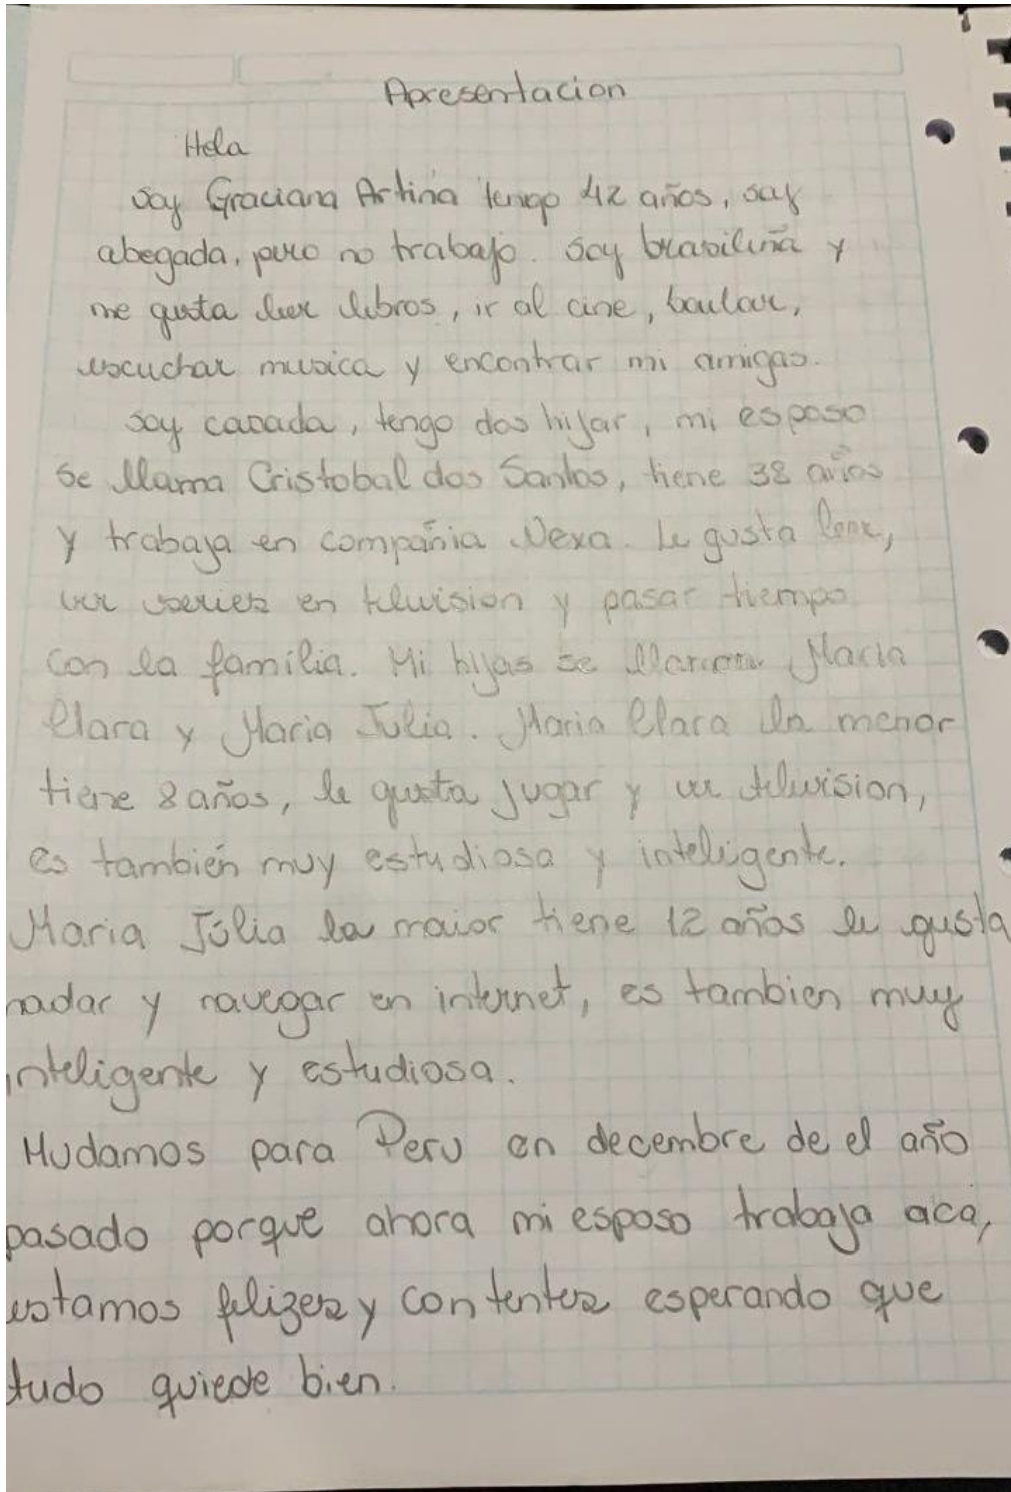 Apresentacion
Hola
Soy Graciana Artina tengo 42 años, soy
abogada, pero no trabajo. Soy brasileña y
me gusta leer libros, ir al cine, bailar,
escuchar musica y encontrar mi amigas.
Soy casada, tengo dos hijas, mi esposo
se llama Cristobal dos Santos, tiene 38 años
y trabaja en compañia Nexa. Le gusta leer,
ver series en television y pasar tiempo
con la família. Mi hijas se llaman Maria
Clara y Maria Julia. Maria Clara la menor
tiene 8 años, le gusta jugar y ver television,
es también muy estudiosa y inteligente.
Maria Júlia la maior tiene 12 años le gusta
nadar y navegar en internet, es tambien muy
inteligente y estudiosa.
Mudamos para Peru en decembre de el año
pasado porque ahora mi esposo trabaja aca,
estamos felizes y contentes esperando que
tudo quiede bien.